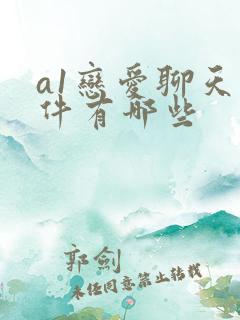 a1戀愛聊天
件有哪些
郭劍
未经同意禁止转载